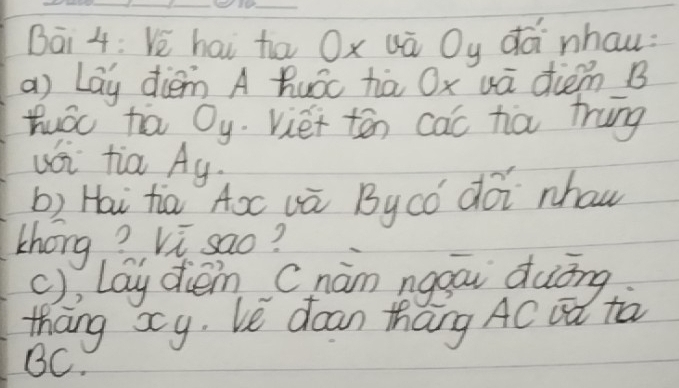 Bài 4: Vẽ hai tia Ox và Oy đối nhau:
a) Lấy điểm A thuộc tia Ox và điểm B
thuộc tia Oy. Viết tên các tia trùng
với tia Ay.
b) Hai tia Ax và By có đối nhau
không? Vì sao?
c), Lấy điểm C nằm ngoài đường
thẳng xy. Vẽ đoạn thẳng AC và tia
BC.